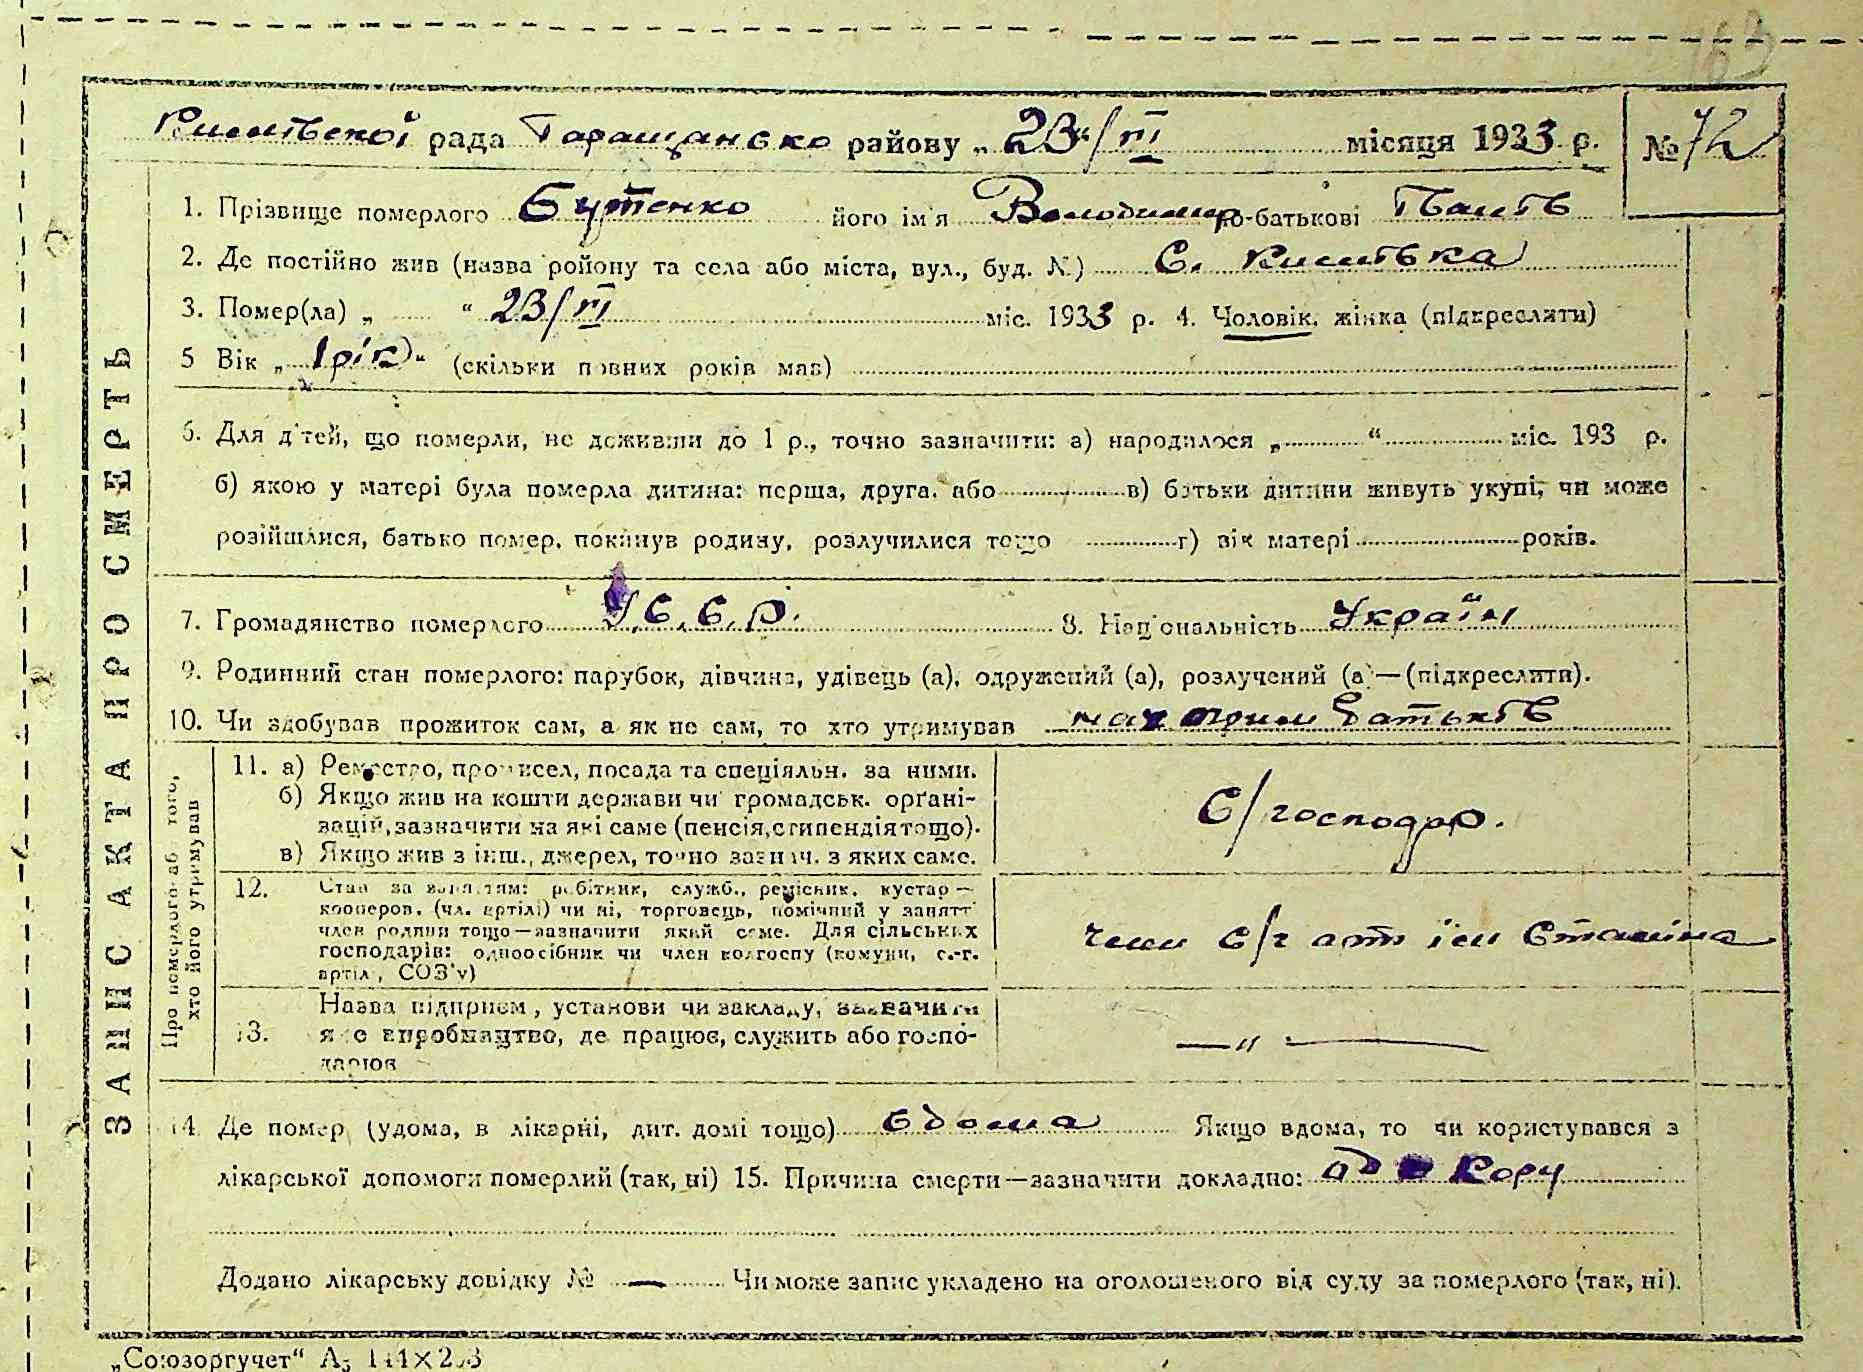 163
Кислівської рада Таращансько району „23“/VI місяця 1933 р. № 72
1. Прізвище померлого Бутенко його ім'я Володимир по-батькові Іванів
2. Де постійно жив (назва ройону та села або міста, вул., буд. №) С. Кислівка
3. Помер(ла) „ “ 23/VI міс. 1933 р. 4. Чоловік, жінка (підкреслити)
5 Вік „1 рік“ (скільки повних років мав)
6. Для дітей, що померли, не доживши до 1 р., точно зазначити: а) народилося „ “ міс. 193 р.
б) якою у матері була померла дитина: перша, друга, або в) батьки дитини живуть укупі, чи може
розійшлися, батько помер, покинув родину, розлучилися тощо г) вік матері років.
7. Громадянство померлого У.С.С.Р. 8. Національність Україн
9. Родинний стан померлого: парубок, дівчина, удівець (а), одружений (а), розлучений (а)—(підкреслити).
10. Чи здобував прожиток сам, а як не сам, то хто утримував на батьків
ЗАПИС АКТА ПРО СМЕРТЬ
Про померлого або того, хто його утримував
11. а) Ремество, промисел, посада та спеціяльн. за ними.
б) Якщо жив на кошти держави чи громадськ. орґані-
зацій, зазначити на які саме (пенсія, стипендія тощо).
в) Якщо жив з інш., джерел, точно зазнач. з яких саме.
С/господар.
12. Стан за заняттям: робітник, служб., ремісник, кустар—
кооперов. (чл. артілі) чи ні, торговець, помічний у занятті
член родини тощо—зазначити який саме. Для сільських
господарів: одноосібник чи член колгоспу (комуни, с.-г.
артіл, СОЗ'у)
член с/г арт ім Сталіна
13. Назва підприєм, установи чи закладу, зазначити
яке виробництво, де працює, служить або госпо-
дарює
— „ —
14 Де помер (удома, в лікарні, дит. домі тощо) вдома Якщо вдома, то чи користувався з
лікарської допомоги померлий (так, ні) 15. Причина смерти—зазначити докладно: од кору
Додано лікарську довідку № — Чи може запис укладено на оголошеного від суду за померлого (так, ні).
„Союзоргучет“ А5